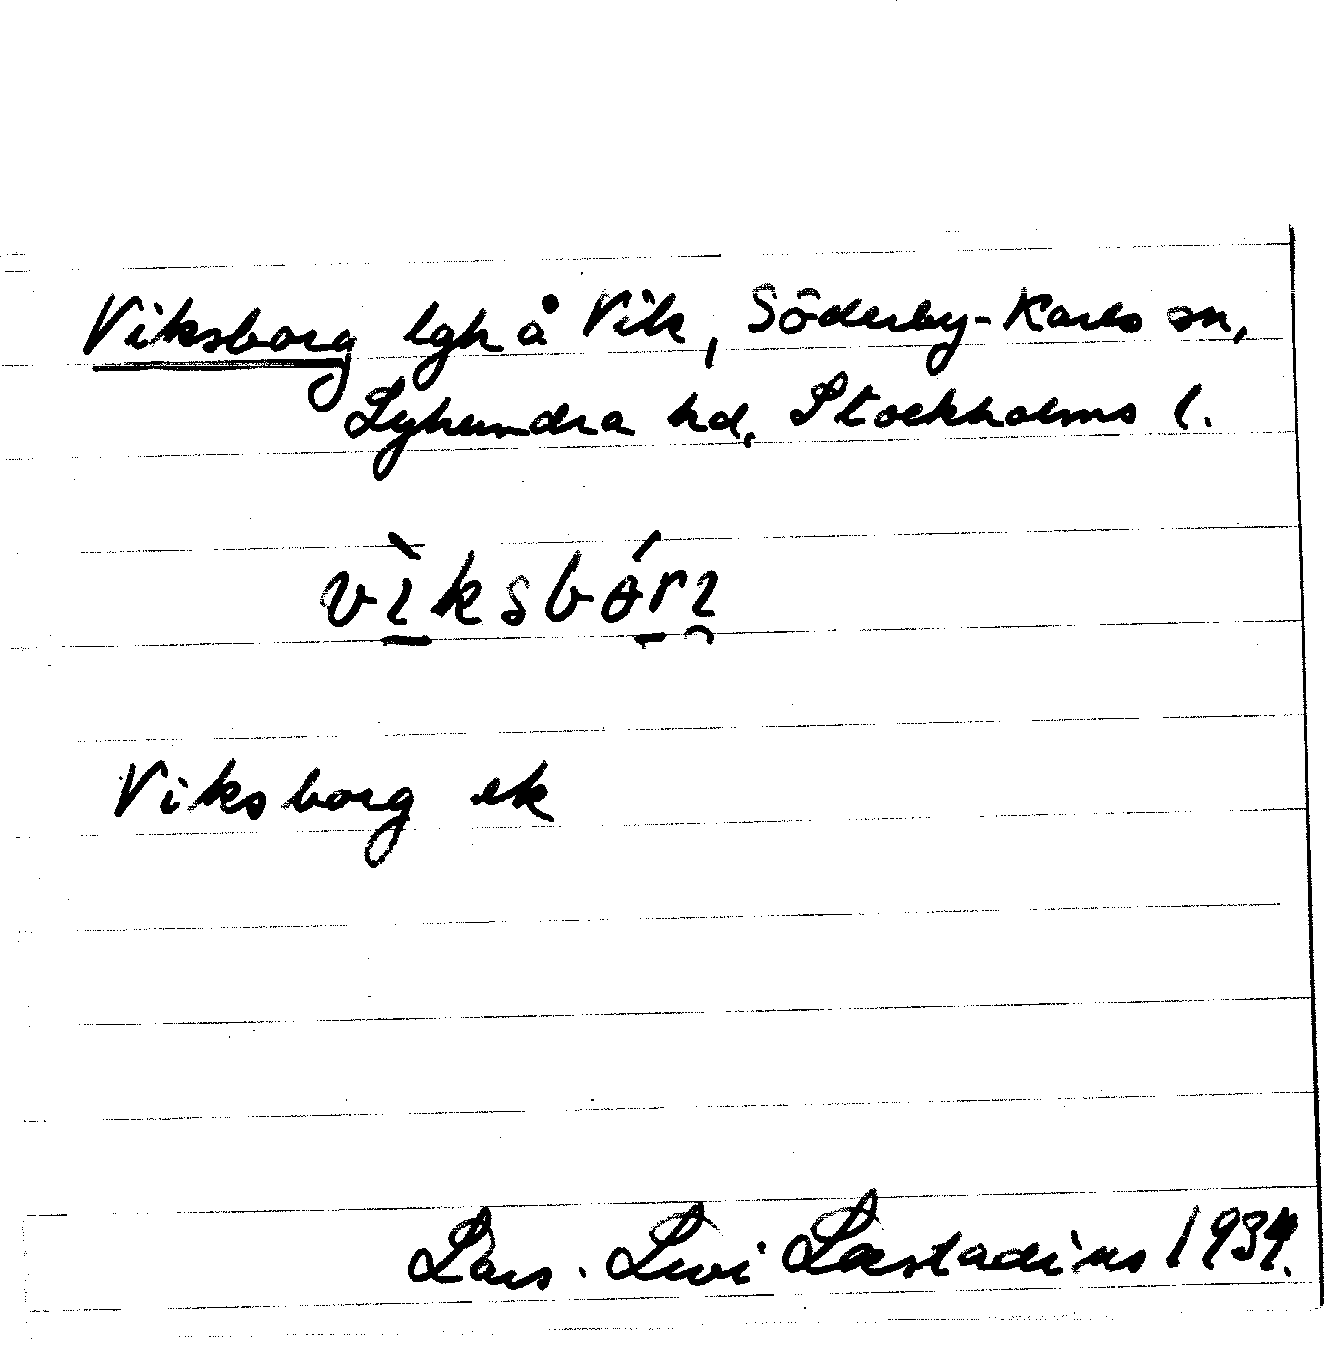 Viksborg lgh å Vik, Söderby-Karls sn,
Lyhundra hd, Stockholms l.
vìksbórı
Viksborg ek
Lars. Levi Læstadius 1934.